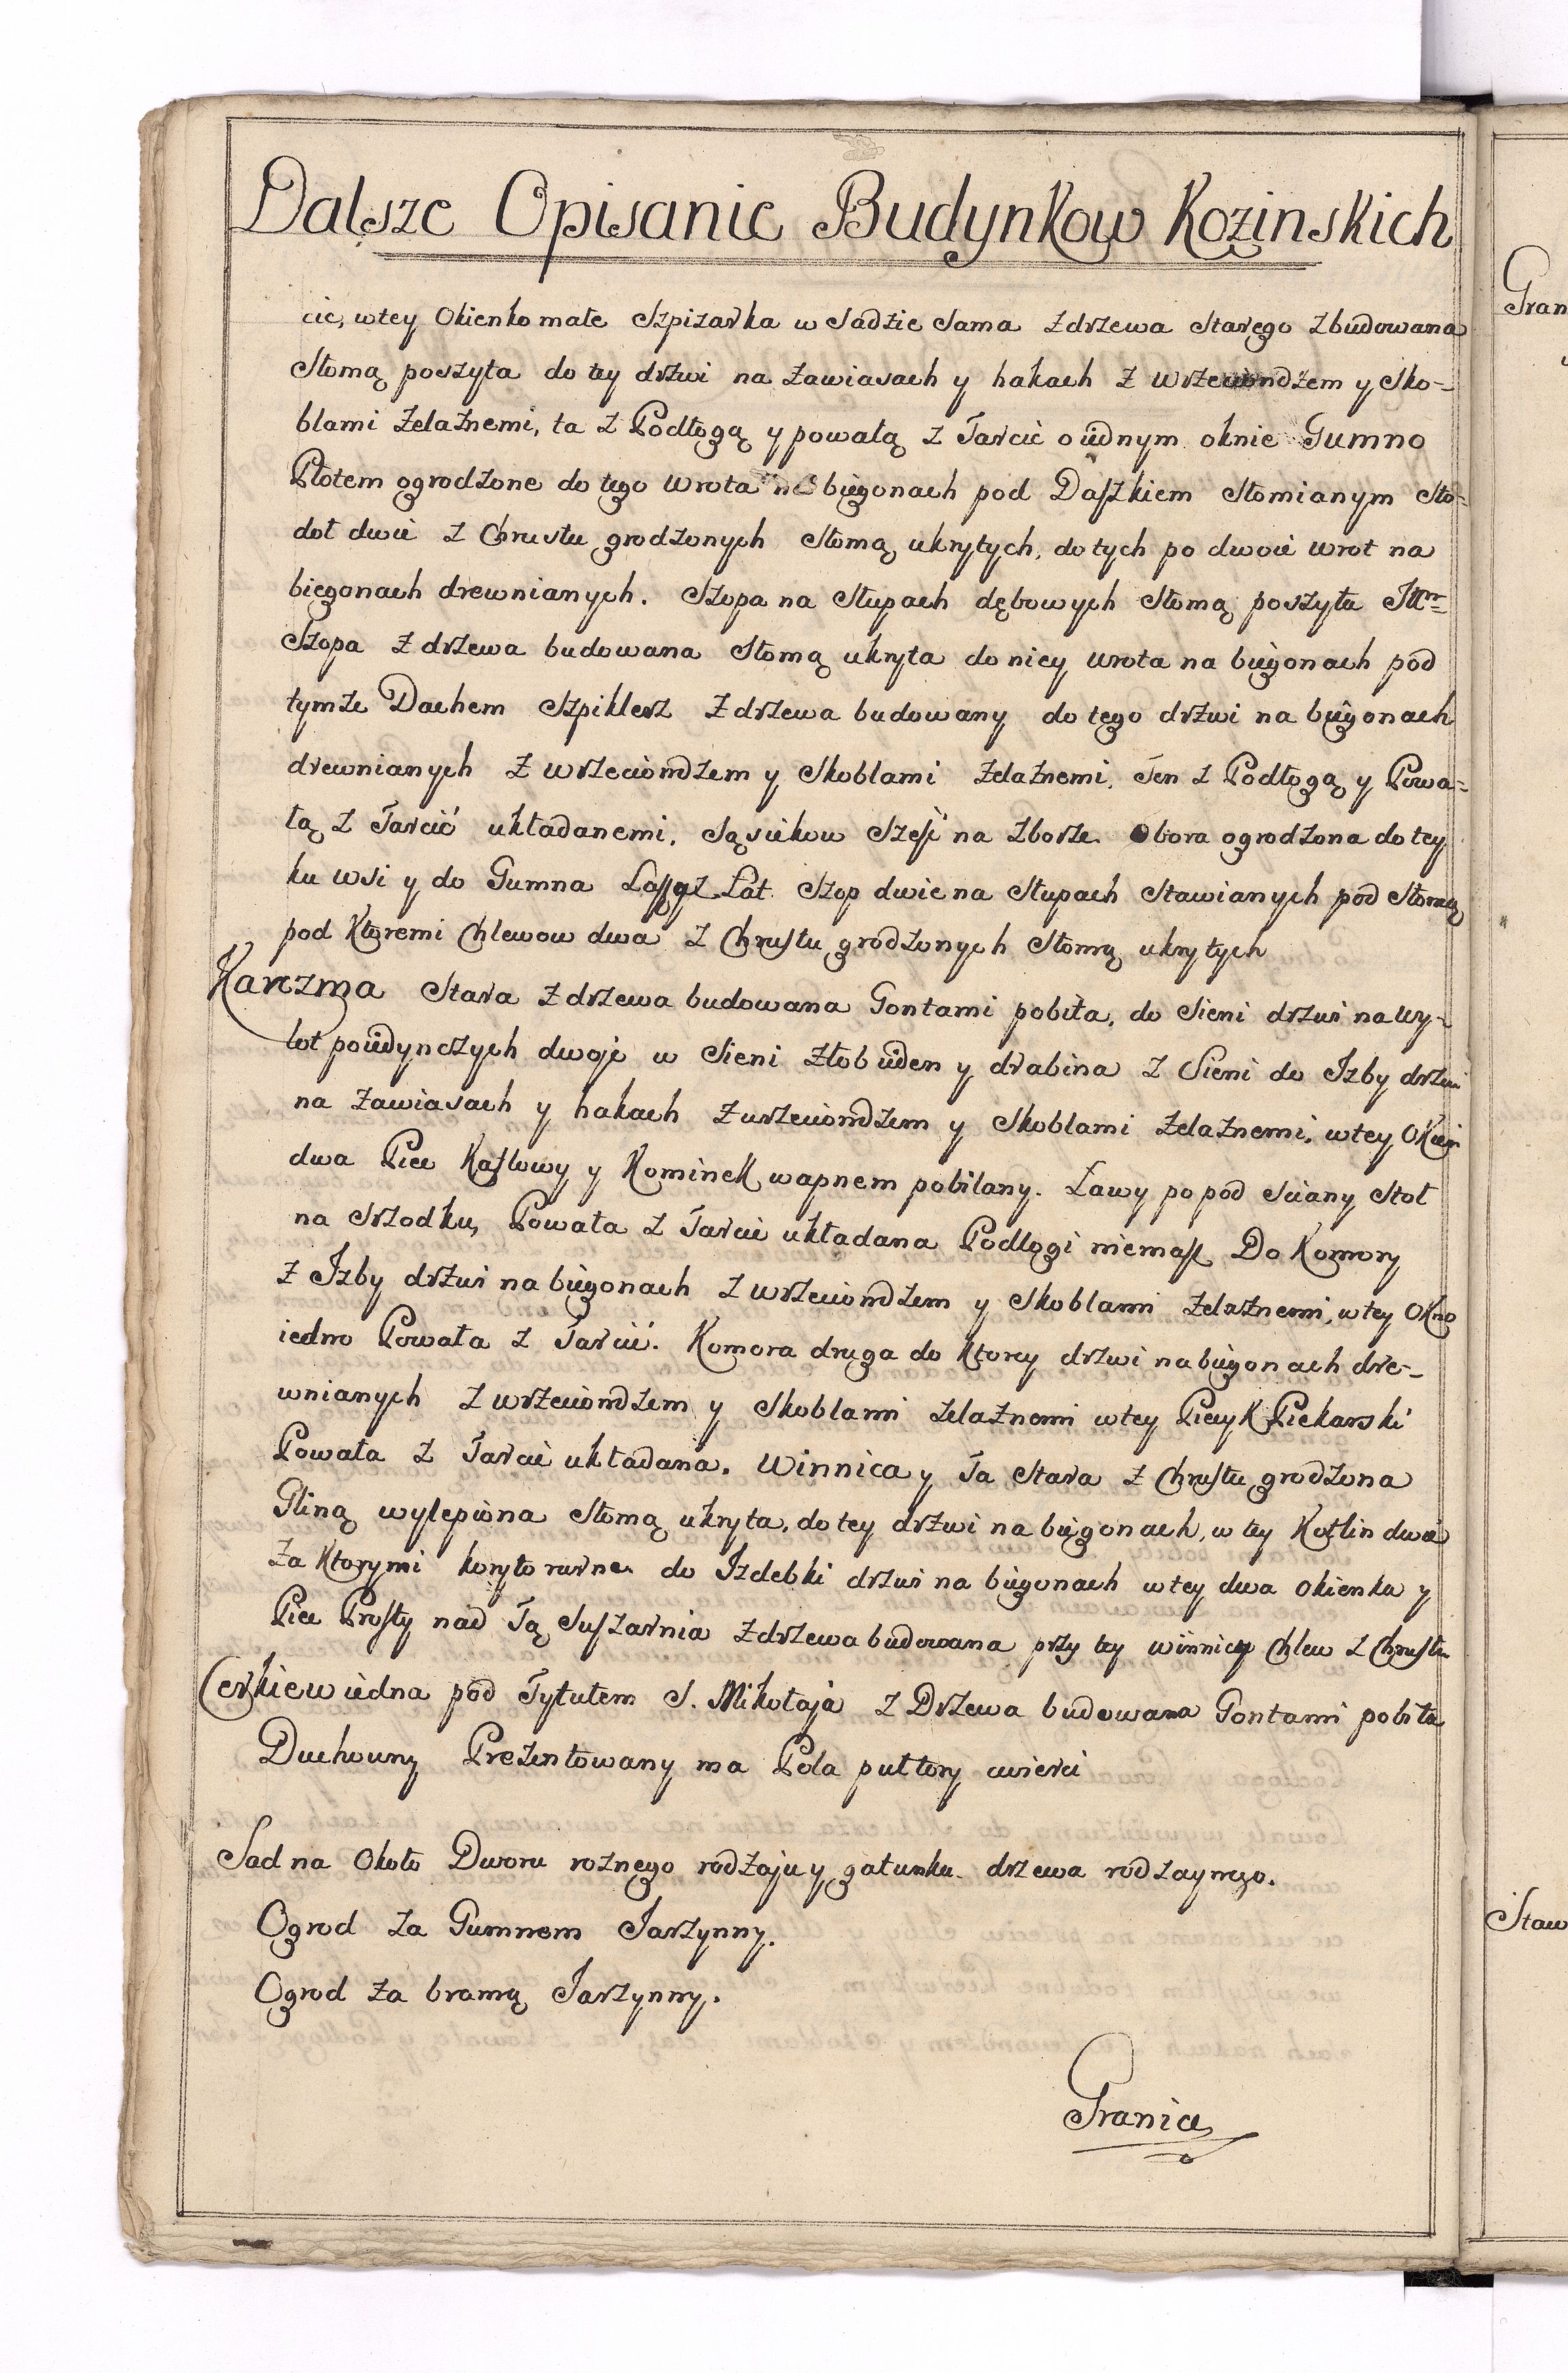 Dalsze Opisanie Budynkow Kozinskich
cie, w tey Okienko małe Szpizarka w Sadzie Sama z drzewa Starego zbudowana
Słomą poszyta do tey drzwi na zawiasach y hakach z wrzeciondzem y Sko-
blami żelaznemi, ta z Podłogą y powałą z Tarcic o iednym oknie Gumno
Płotem ogrodzone do tego wrota na biegonach pod Daszkiem Słomianym Sto-
doł dwie z Chrustu grodzonych Słomą ukrytych, do tych po dwoie wrot na
biegonach drewnianych. Szopa na Słupach dębowych Słomą poszyta Itm
Szopa z drzewa budowana Słomą ukryta do niey wrota na biegonach pod
tymże Dachem Szpiklerz z drzewa budowany do tego drzwi na biegonach
drewnianych z wrzeciondzem y Skoblami żelaznemi, Ten z Podłogą y Powa-
łą z Tarcić układanemi, Sąsiekow Szesć na Zborze. Obora ogrodzona do tey
ku wsi y do Gumna Łat. Szop dwie na Słupach Stawianych pod Słomą
pod Ktoremi Chlewow dwa z Chrustu grodzonych Słomą ukrytych
Karczma Stara z drzewa budowana Gontami pobita, do Sieni drzwi na wy-
lot poiedynczych dwoje w Sieni żłob ieden y drabina z Sieni do Izby drzwi
na zawiasach y hakach z wrzeciondzem y Skoblami żelaznemi, w tey Okien
dwa Piec Kaflowy y Kominek wapnem pobilany. Ławy po pod Sciany Stoł
na Srzodku, Powała z Tarcic układana Podłogi niemasz Do Komory
z Izby drzwi na biegonach z wrzeciondzem y Skoblami żelaznemi, w tey Okno
iedno Powała z Tarcić. Komora druga do Ktorey drzwi na biegonach dre-
wnianych z wrzeciondzem y Skoblami żelaznemi w tey Piecyk Piekarski
Powała z Tarcic układana. Winnica y Ta Stara z Chrustu grodzona
Gliną wylepiona Słomą ukryta, do tey drzwi na biegonach, w tey Kotlin dwie
za Ktorymi koryto do Izdebki drzwi na biegonach w tey dwa okienka y
Piec Prosty nad Tą Suszarnia z drzewa budowana przy tey winnicy Chlew z Chrustu
Cerkiew iedna pod Tytułem S. Mikołaja z Drzewa budowana Gontami pobita
Duchowny Prezentowany ma Pola pułtory cwierci
Sad na Około Dworu roznego rodzaju y gatunku drzewa rodzaynego.
Ogrod za Gumnem Jarzynny.
Ogrod za bramą Jarzynny.
Granice
Gran
Staw